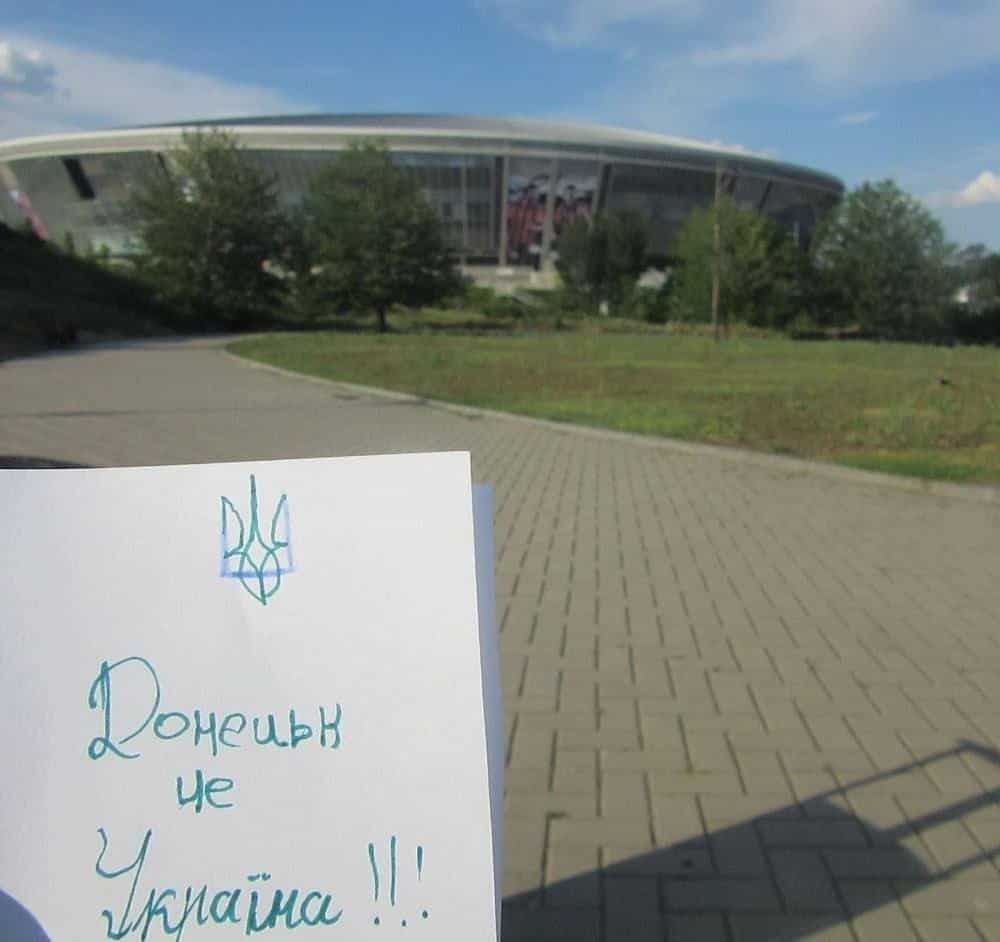 Донецьк
це
Україна !!!